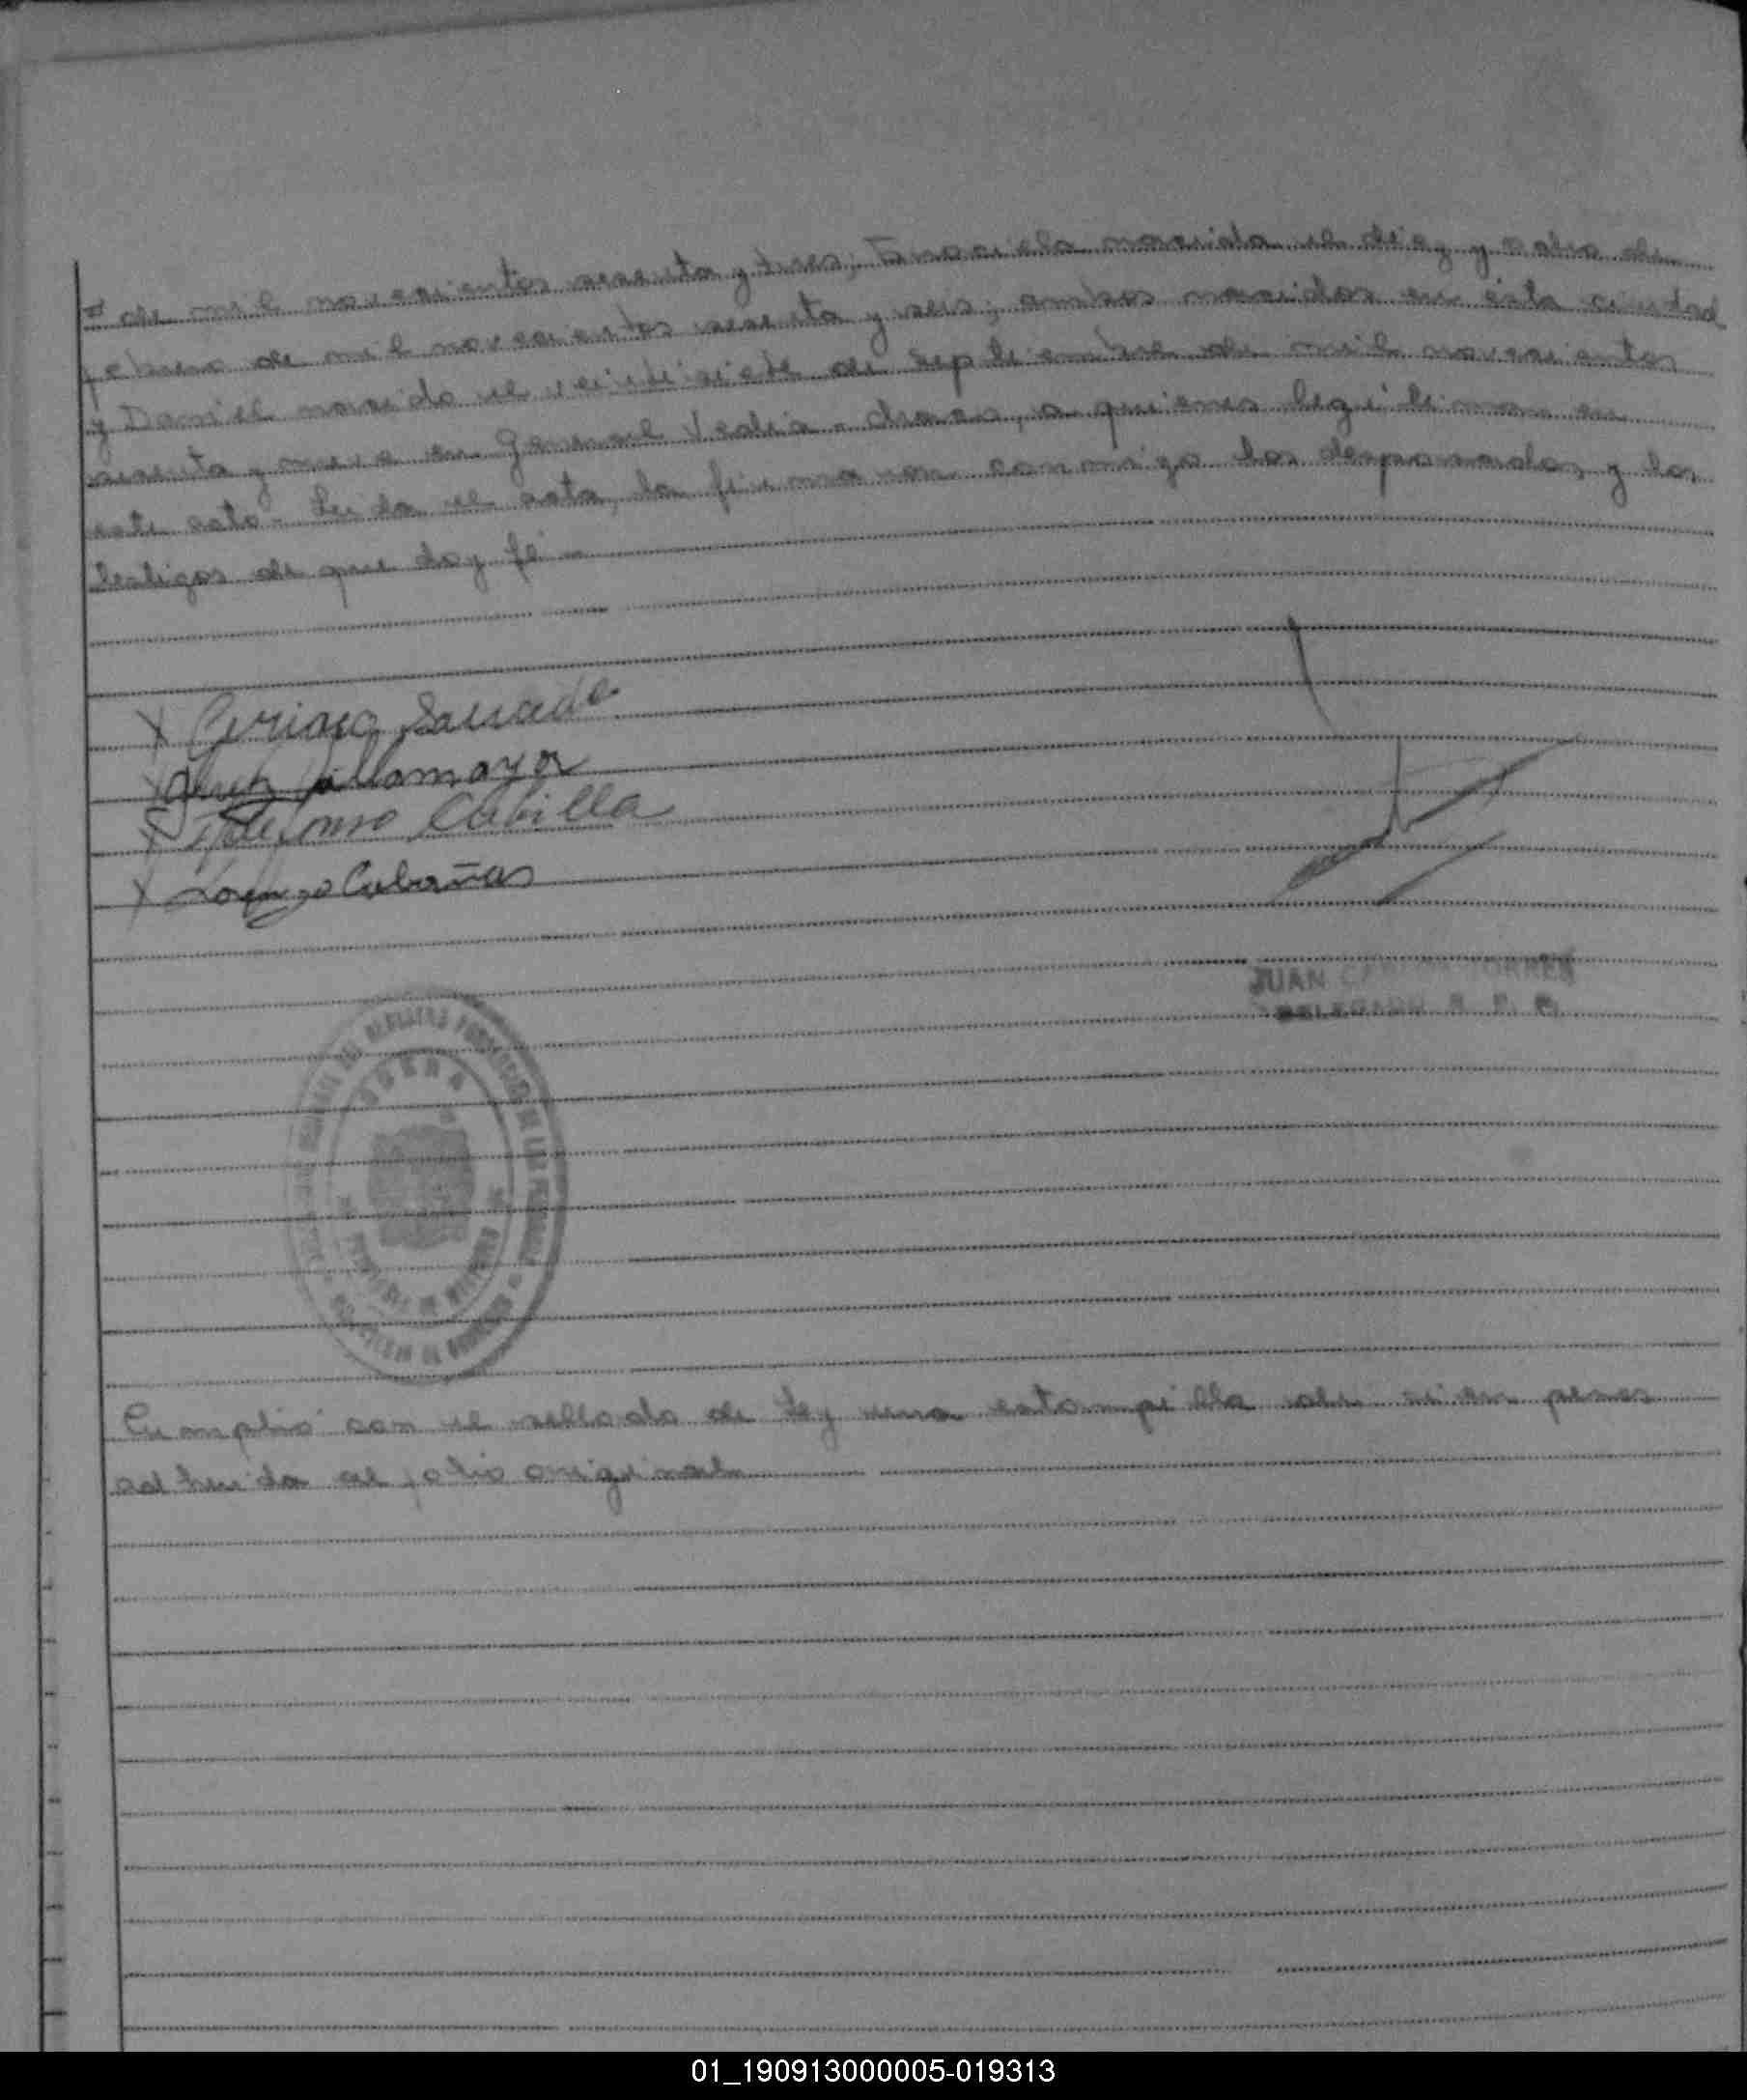 = de mil novecientos sesenta y tres; Graciela nacida el diez y ocho de
febrero de mil novecientos sesenta y seis; ambos nacidos en ésta ciudad
y Daniel nacido el veintisiete de Septiembre de mil novecientos
sesenta y nueve en General Vedia - Chaco, a quienes legitiman en
este acto - Leida el acta, la firmaron conmigo los desposados y los
testigos de que doy fé -
X Ciriaco Saucedo
X Villamayor
X Ildefonso Cubilla
X Lorenzo Cabañas
JUAN CARLOS TORRES
DELEGADO R. P. P.
OBERA
PROVINCIA DE MISIONES
Cumplió con el sellado de Ley una estampilla de cien pesos
adherida al folio original
01_190913000005-019313